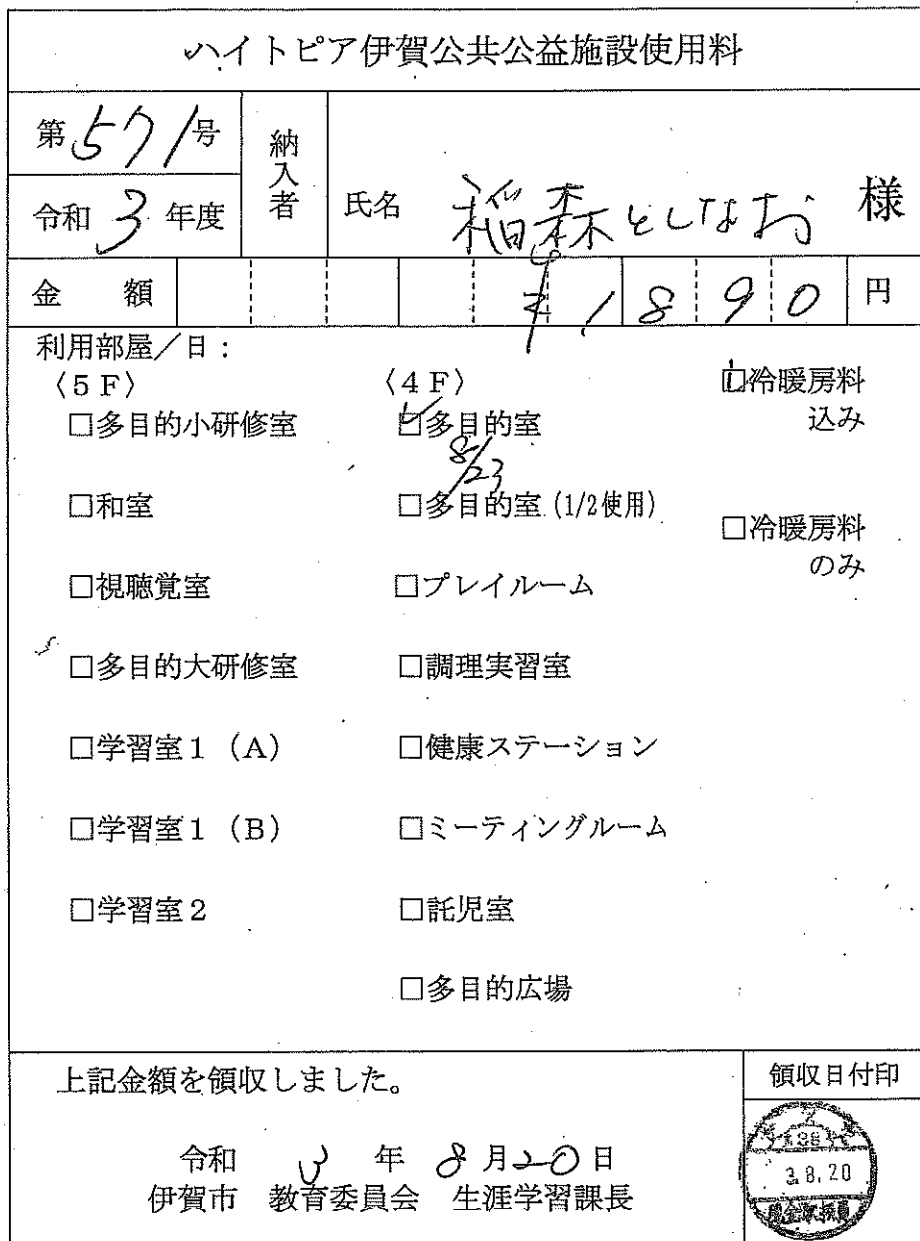 ハイトピア伊賀公共公益施設使用料
第571号
令和 3 年度
納入者
氏名 稲森としなお 様
金 額 ¥1890 円
利用部屋/日:
〈5F〉
□多目的小研修室
□和室
□視聴覚室
□多目的大研修室
□学習室1(A)
□学習室1(B)
□学習室2
〈4F〉
☑多目的室
8/23
□多目的室(1/2使用)
□プレイルーム
□調理実習室
□健康ステーション
□ミーティングルーム
□託児室
□多目的広場
☑冷暖房料
込み
□冷暖房料
のみ
上記金額を領収しました。
令和 3 年 8月20日
伊賀市 教育委員会 生涯学習課長
領収日付印
38
3.8.20
現金取扱員